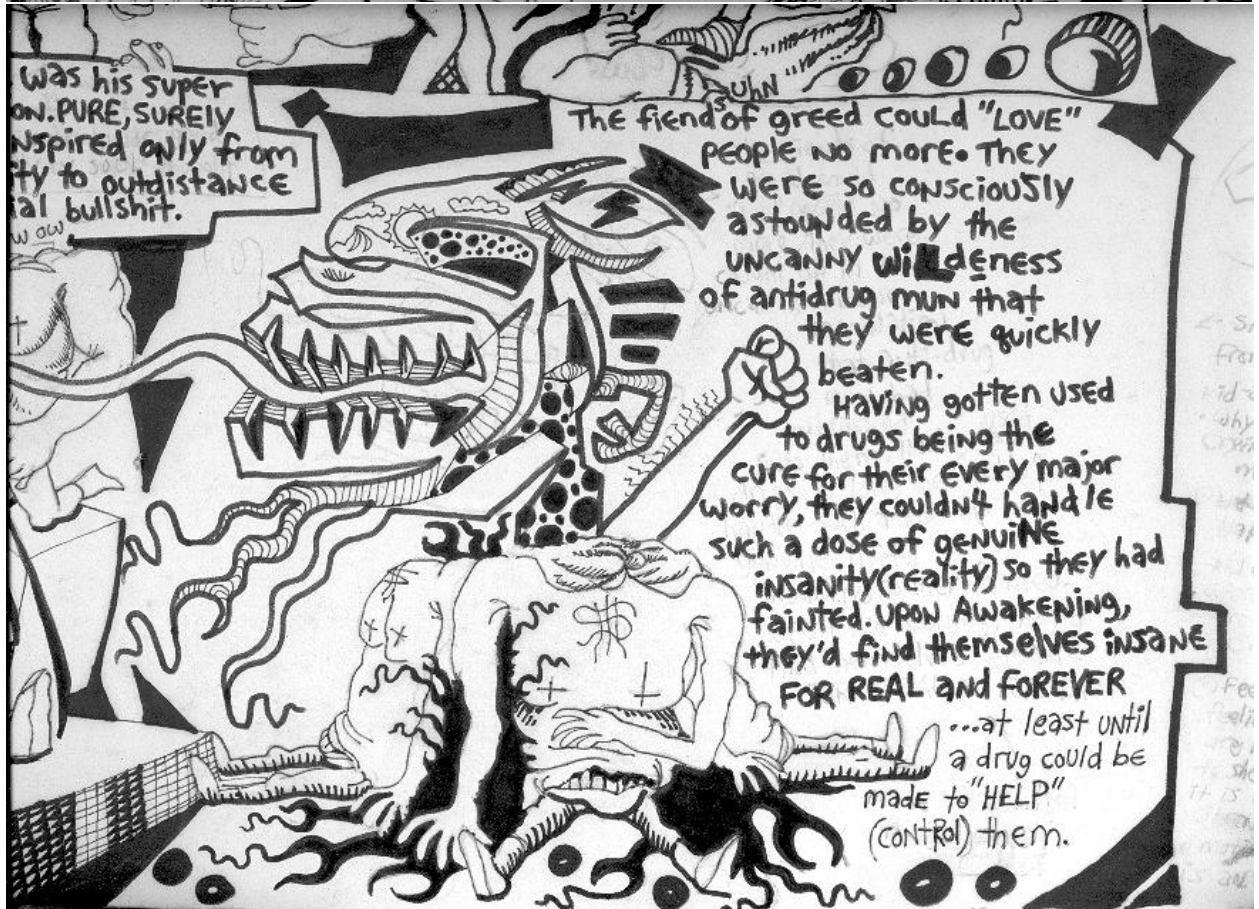 was his super
ON. PURE, SURELY
nspired only from
ity to outdistance
ial bullshit.
W OW
UHN
The fiends of greed could "LOVE"
people no more. They
were so consciously
astounded by the
uncanny wiLdeness
of antidrug mun that
they were quickly
beaten.
Having gotten used
to drugs being the
cure for their every major
worry, they couldn't handle
such a dose of genuine
insanity (reality) so they had
fainted. Upon Awakening,
they'd find themselves insane
FOR REAL and FOREVER
...at least until
a drug could be
made to "HELP"
(CONTROl) them.